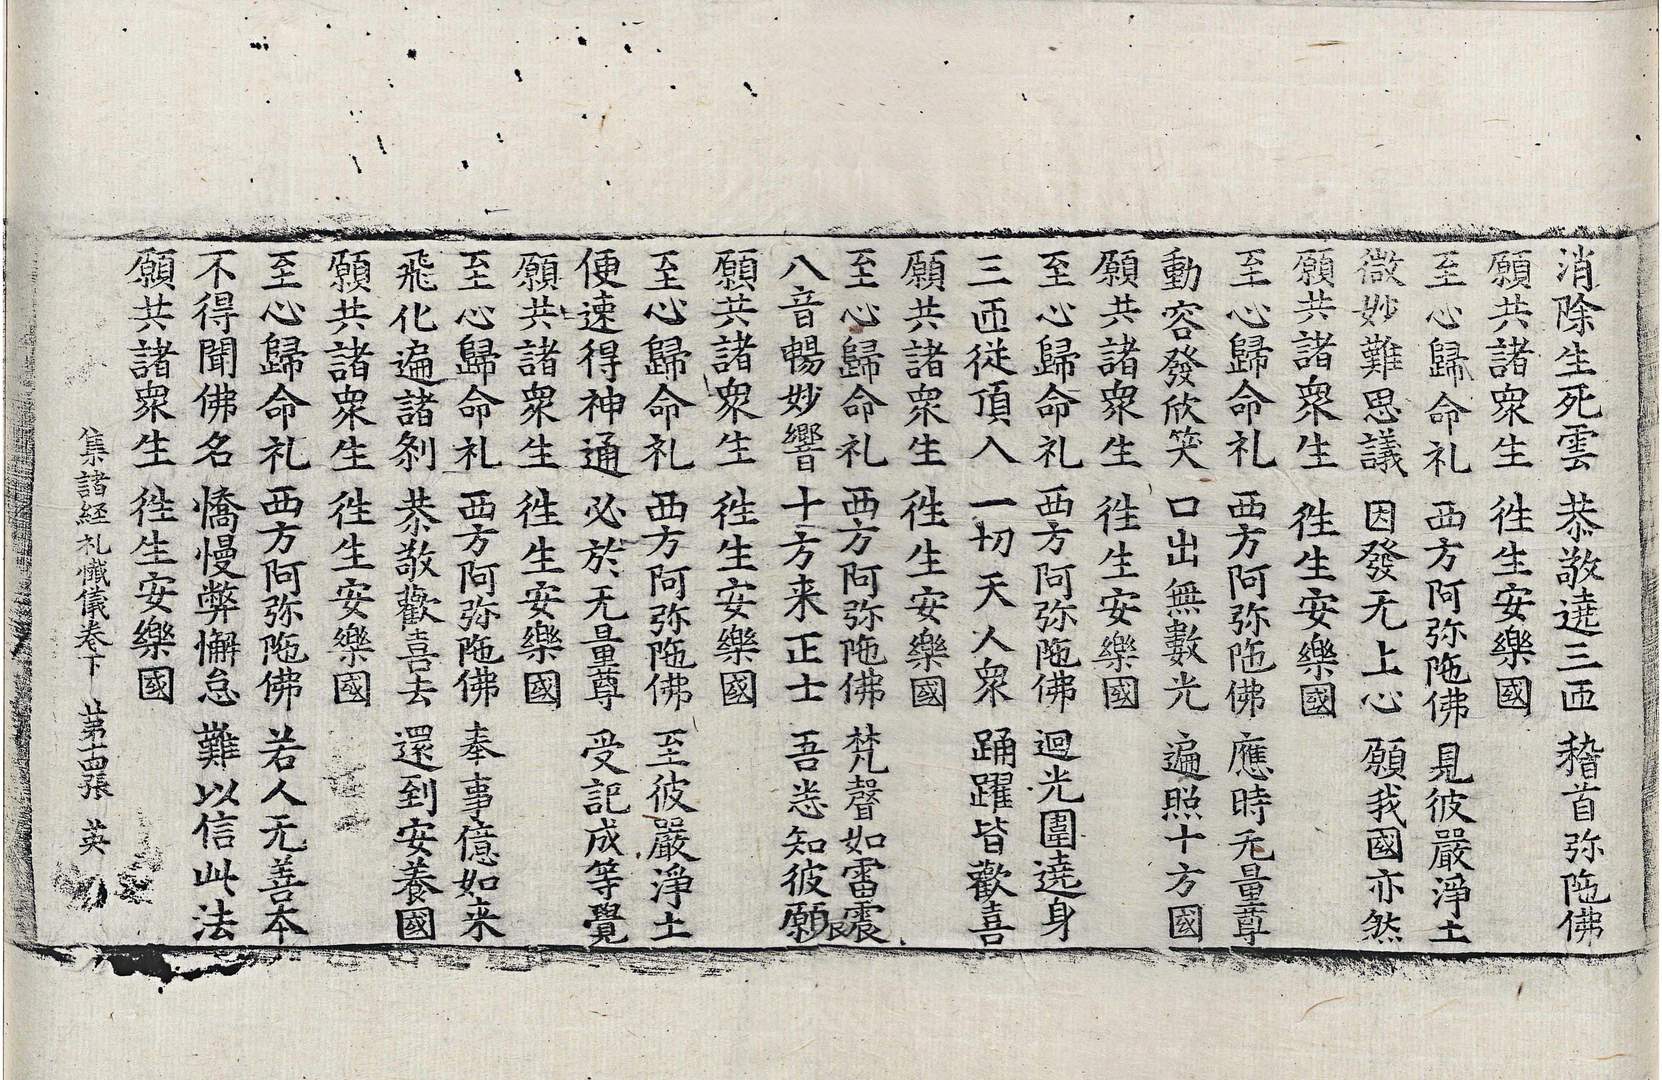 消除生死雲　恭敬遶三匝　稽首弥陁佛
願共諸衆生　徃生安樂國
至心歸命礼　西方阿弥陁佛　見彼嚴淨土
微妙難思議　因發无上心　願我國亦然
願共諸衆生　徃生安樂國
至心歸命礼　西方阿弥陁佛　應時无量尊
動容發欣笑　口出無數光　遍照十方國
願共諸衆生　徃生安樂國
至心歸命礼　西方阿弥陁佛　迴光圍遶身
三匝従頂入　一切天人衆　踊躍皆歡喜
願共諸衆生　徃生安樂國
至心歸命礼　西方阿弥陁佛　梵聲如雷震
八音暢妙響　十方来正士　吾悉知彼願
願共諸衆生　徃生安樂國
至心歸命礼　西方阿弥陁佛　至彼嚴淨土
便速得神通　必於无量尊　受記成等覺
願共諸衆生　徃生安樂國
至心歸命礼　西方阿弥陁佛　奉事億如来
飛化遍諸刹　恭敬歡喜去　還到安養國
願共諸衆生　徃生安樂國
至心歸命礼　西方阿弥陁佛　若人无善本
不得聞佛名　憍慢弊懈怠　難以信此法
願共諸衆生　徃生安樂國
集諸經礼懺儀卷下　第十四張　英